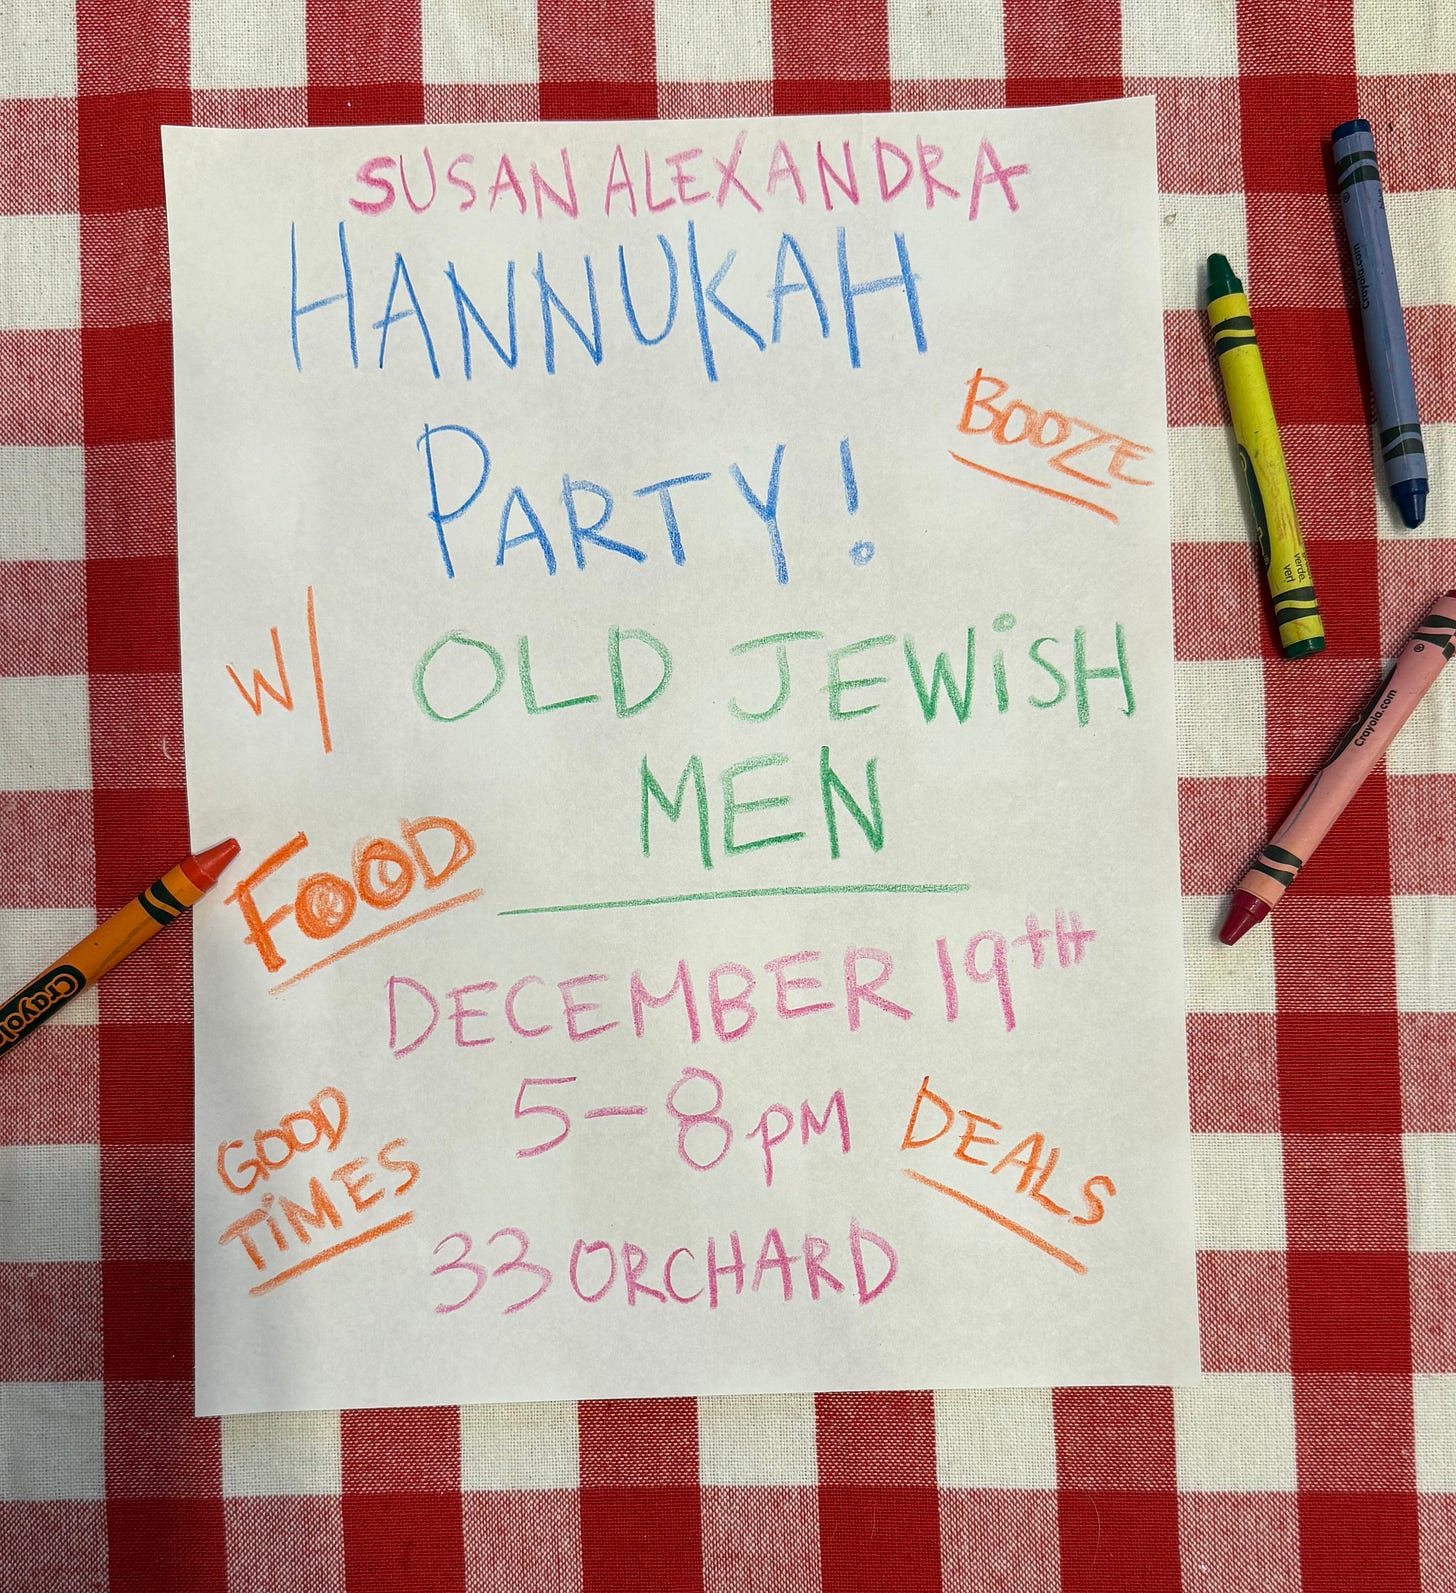 SUSAN ALEXANDRA
HANNUKAH
PARTY!
BOOZE
W/ OLD JEWiSH
MEN
FOOD
DECEMBER 19TH
5-8pM
GOOD
TiMES
DEALS
33 ORCHARD
Crayola.com
verde.
vert
Crayola.com
Crayola